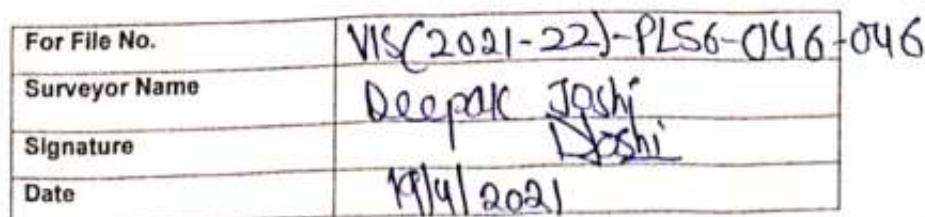 For File No. VIS(2021-22)-PL56-046-046
Surveyor Name Deepak Joshi
Signature DJoshi
Date 19/4/2021